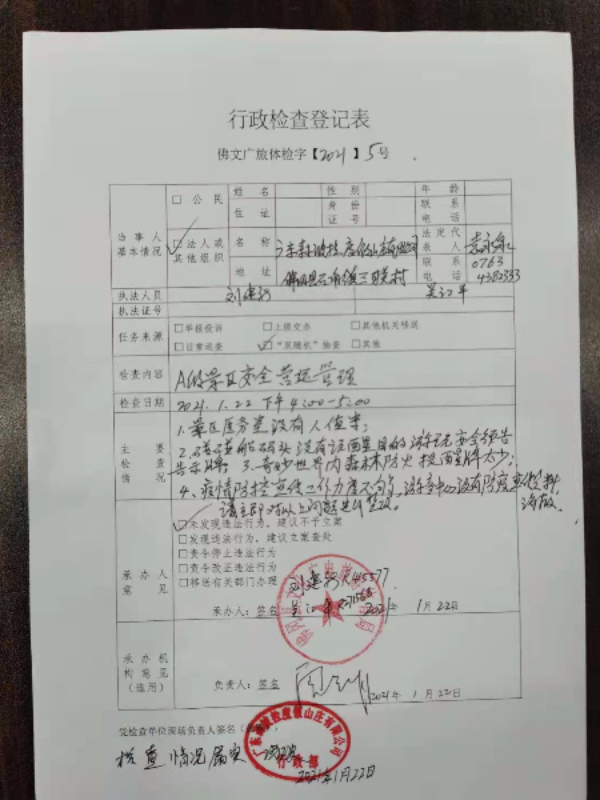 行政检查登记表
佛文广旅体检字【2021】5号
当事人基本情况
□公民 姓名 性别 年龄
住址 身份证号 联系电话
□法人或其他组织 名称 法定代表人
地址 佛冈县石角镇三 村 联系电话 0763 4382333
执法人员 刘建 吴江平
执法证号
任务来源 □举报投诉 □上级交办 □其他机关移送
□日常巡查 □“双随机”抽查 □其他
检查内容 A级景区安全 营运管理
检查日期 2021.1.22 下午4:00-5:00
主要检查情况
1.景区医务室没有人值班;
2.碰碰船码头没有设置醒目的游玩安全须告
告示牌; 3.奇妙世界内森林防火提醒牌太少;
4、疫情防控宣传工作力度不够,游客中心没有防疫宣传资料
海报
请立即对以上问题进行整改。
承办人意见
□未发现违法行为,建议不予立案
□发现违法行为,建议立案查处
□责令停止违法行为
□责令改正违法行为
□移送有关部门办理
承办人:签名 吴江平 2021年1月22日
承办机构意见(选用)
负责人:签名 2021年1月22日
受检查单位现场负责人签名
检查情况属实
行政部
2021年1月22日